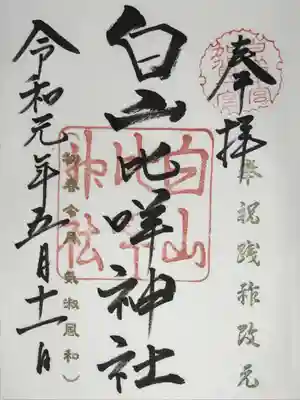 奉拝
奉祝践祚改元
白山比咩神社
白山
比咩
神社
（初春令月氣淑風和）
令和元年五月十一日